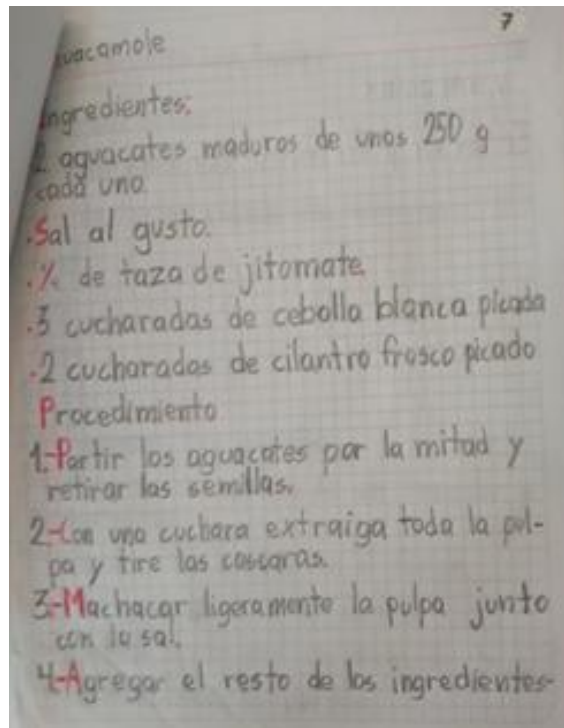 7
uacamole
Ingredientes:
2 aguacates maduros de unos 250 g
cada uno.
.Sal al gusto.
. de taza de jitomate.
.3 cucharadas de cebolla blanca picada
.2 cucharadas de cilantro fresco picado
Procedimiento
1.-Partir los aguacates por la mitad y
retirar las semillas.
2-Con una cuchara extraiga toda la pul-
pa y tire las cascaras.
3-Machacar ligeramente la pulpa junto
con la sal.
4-Agregar el resto de los ingredientes-